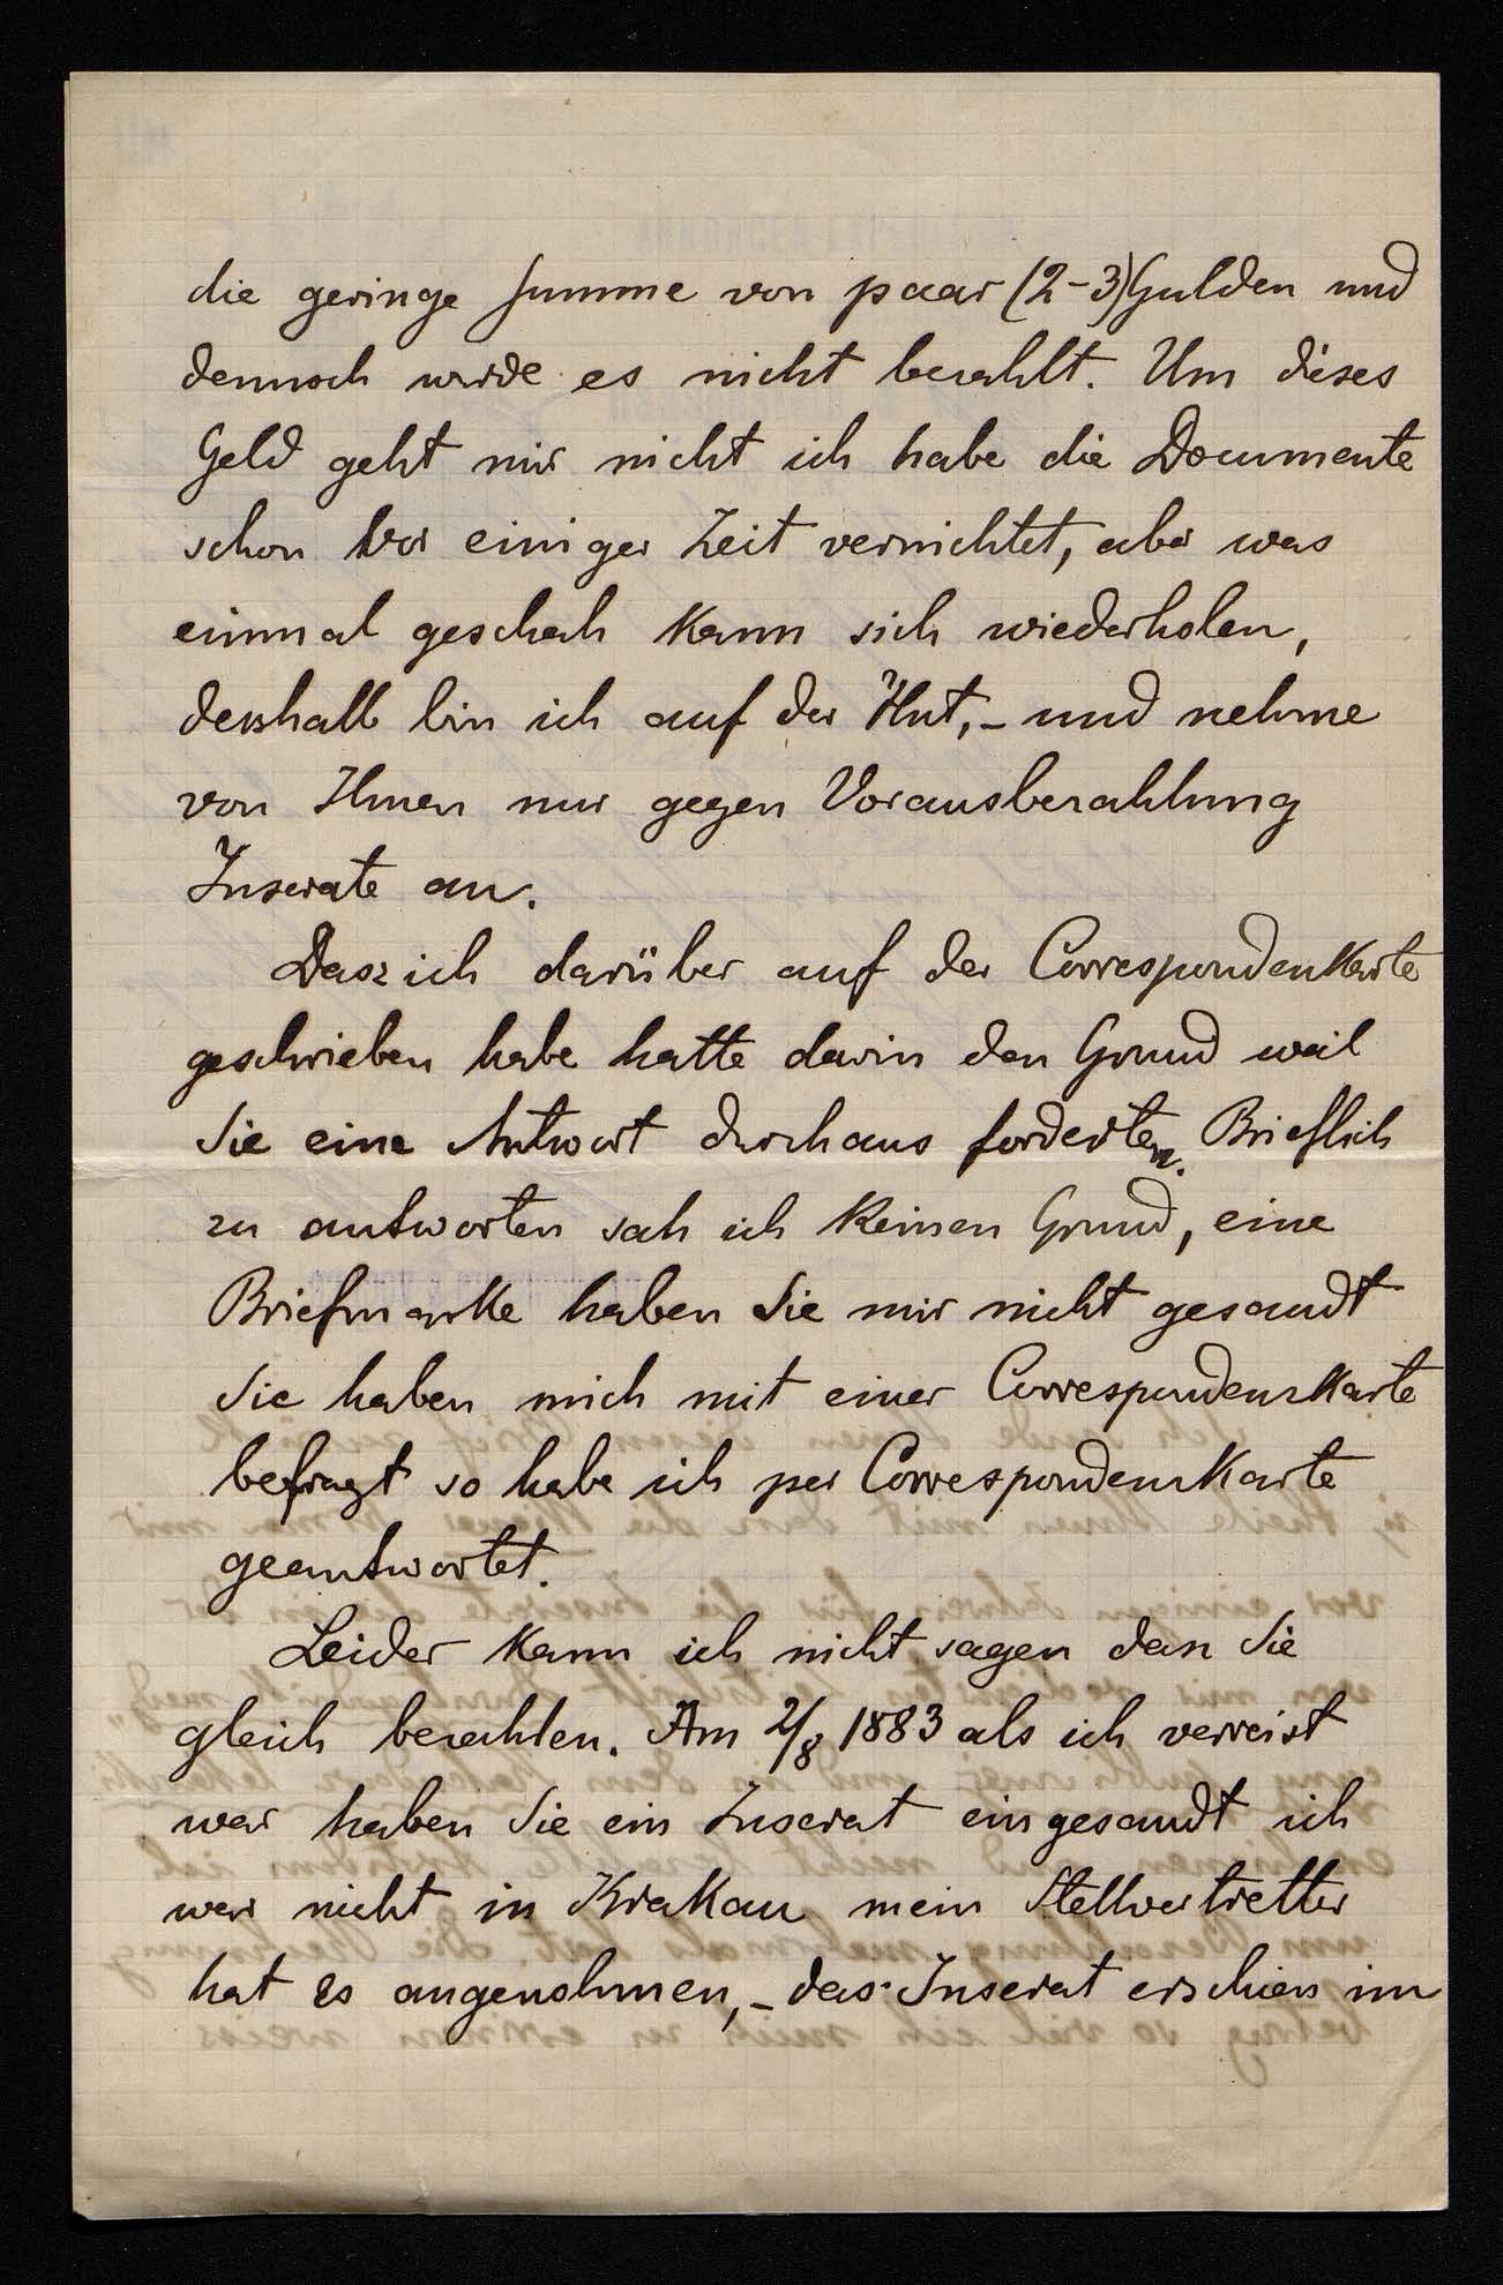 die geringe Summe von paar (2-3) Gulden und
dennoch wurde es nicht bezahlt. Um dieses
Geld geht mir nicht ich habe die Documente
schon vor einiger Zeit vernichtet, aber was
einmal geschah kann sich wiederholen,
deshalb bin ich auf der Hut,- und nehme
von Ihnen nur gegen Vorausbezahlung
Inserate an.
Dasz ich darüber auf der Correspondenkarte
geschrieben habe hatte darin den Grund weil
Sie eine Antwort durchaus forderten. Brieflich
zu antworten sah ich keinen Grund, eine
Briefmarke haben Sie mir nicht gesandt
Sie haben mich mit einer Correspondenzkarte
befragt so habe ich per Correspondenzkarte
geantwortet.
Leider kann ich nicht sagen dasz Sie
gleich bezahlen. Am 2/8 1883 als ich verreist
war haben Sie ein Inserat eingesandt ich
war nicht in Krakau mein Stellvertretter
hat es angenohmen,- das Inserat erschien im